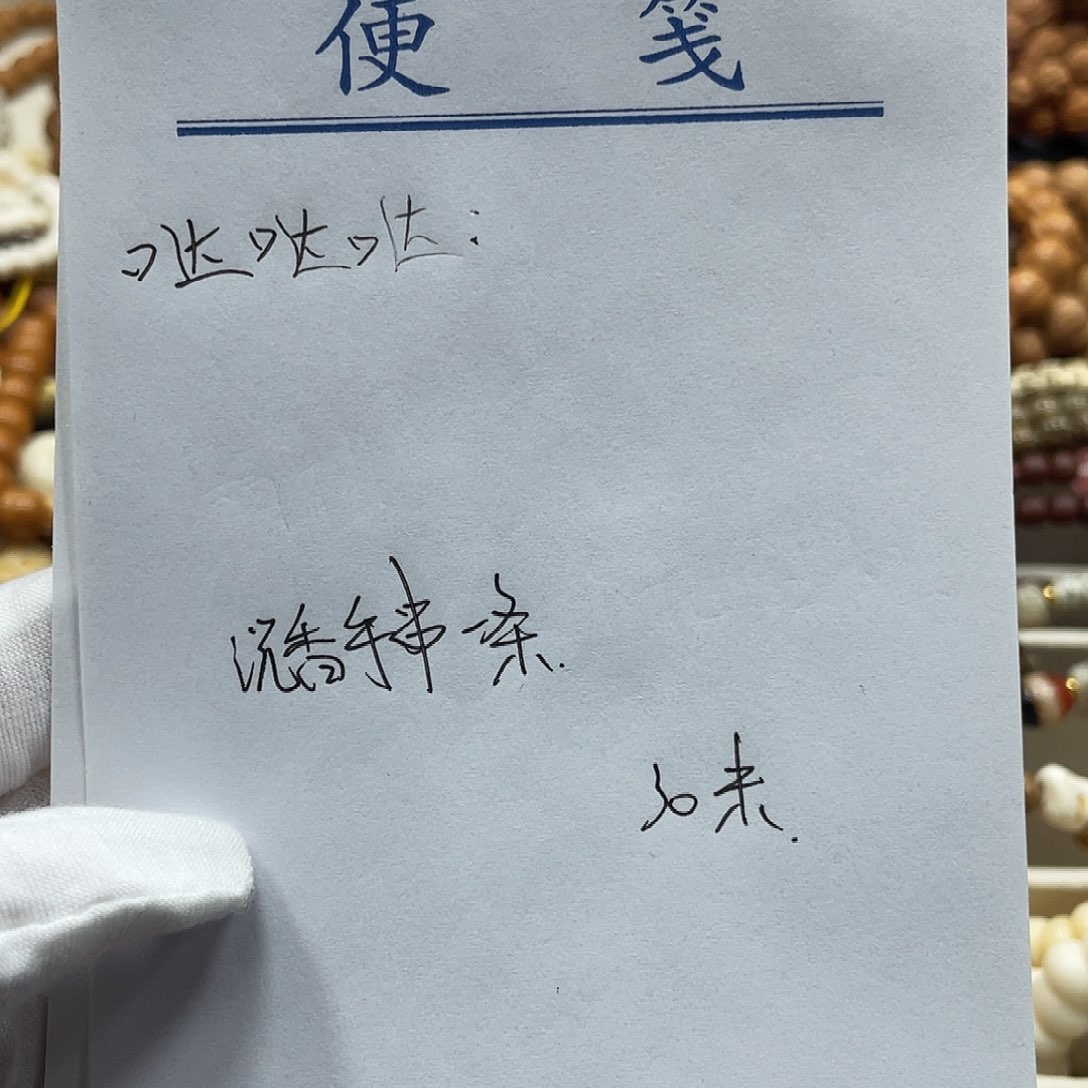 便 笺
哒哒哒:
沉香手串一条.
30米.